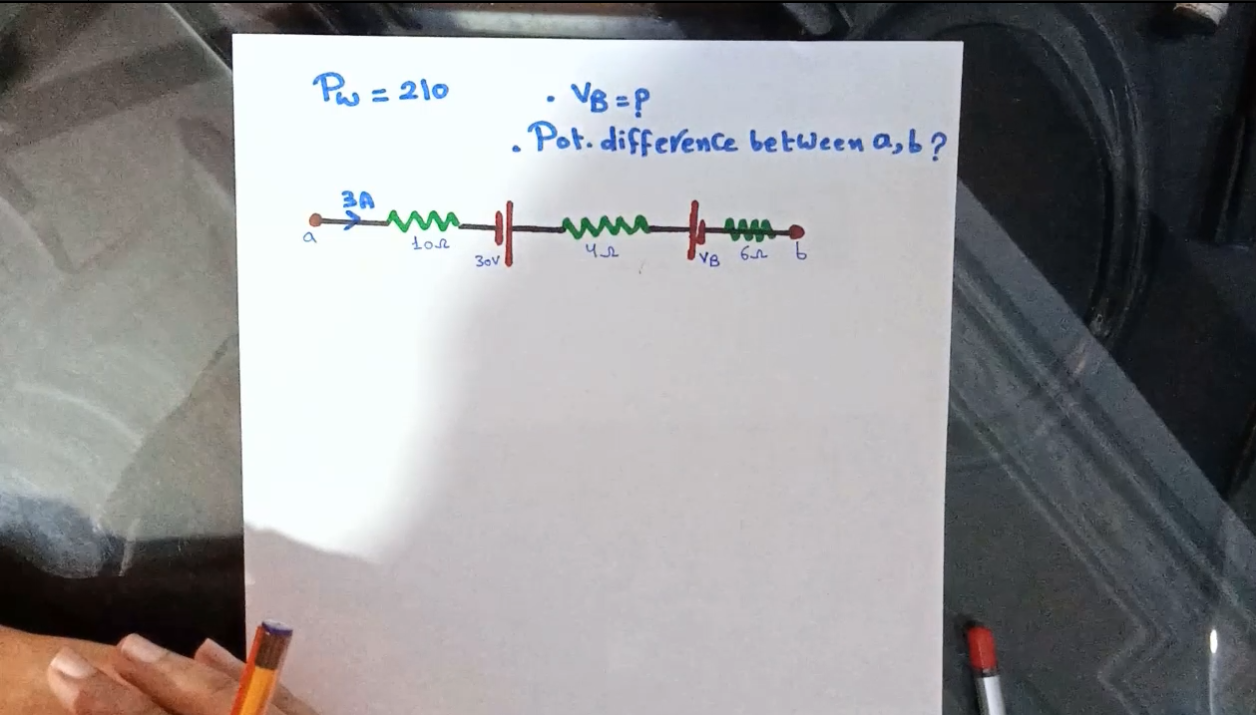 Pw = 210
• VB = ?
• Pot. difference between a, b ?
3A
a
10Ω
30V
4Ω
VB
6Ω
b